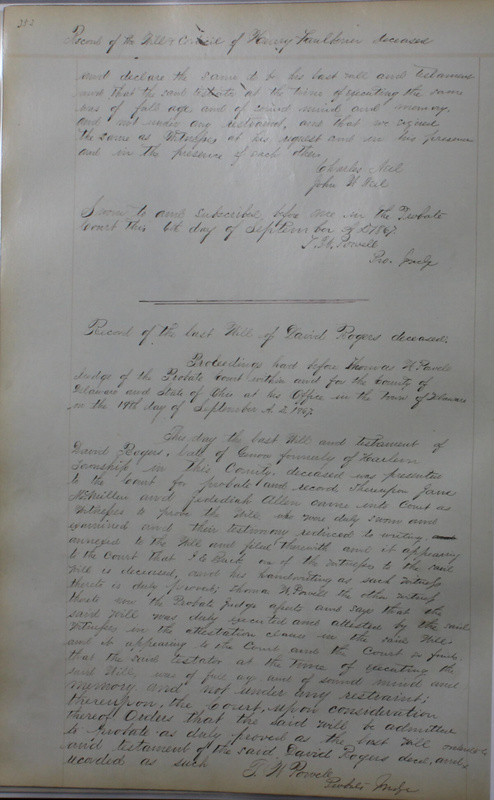 382
Record of the Will & Codicil of Henry Faulkner deceased
and declare the same to be his last will and testament
and that the said testate at the time of executing the same
was of full age and of sound mind and memory
and not under any restraint, and that we signed
the same as Witnesses at his request and in his presence
and in the presence of each other.
Charles Neil
John W Neil
Sworn to and subscribed, before me in the Probate
Court this 6th day of September A.D. 1867.
T. W. Powell
Pro. Judge
Record of the last Will of David Rogers deceased.
Proceedings had before Thomas W Powell
Judge of the Probate Court within and for the County of
Delaware and State of Ohio at his Office in the town of Delaware
on the 19th day of September A D 1867.
This day the last Will and testament of
David Rogers, late of formerly of Harlem
Township in this County deceased was presented
to the Court for probate and record Thereupon Jane
McMillen and Jedediah Allen came into Court as
Witnesses to prove the Will, who was duly sworn and
examined and their testimony reduced to writing
annexed to the Will and filed therewith and it appearing
to the Court that one of the Witnesses to the said
Will is deceased, and his handwriting as such Witness
thereto is duly proved; Thomas W Powell the other Witness
thereto now the Probate Judge and says that the
said Will was duly executed and attested by the said
Witnesses in the attestation clause in the said Will.
and it appearing to the Court and the Court so finds,
that the said testator at the time of executing the
said Will, was of full age and of sound mind and
memory and not under any restraint;
thereupon, the Court, upon consideration
thereof Orders that the said Will be admitted
to Probate as duly proved as the last Will
and testament of the said David Rogers decd, and
recorded as such T. W Powell
Probate Judge